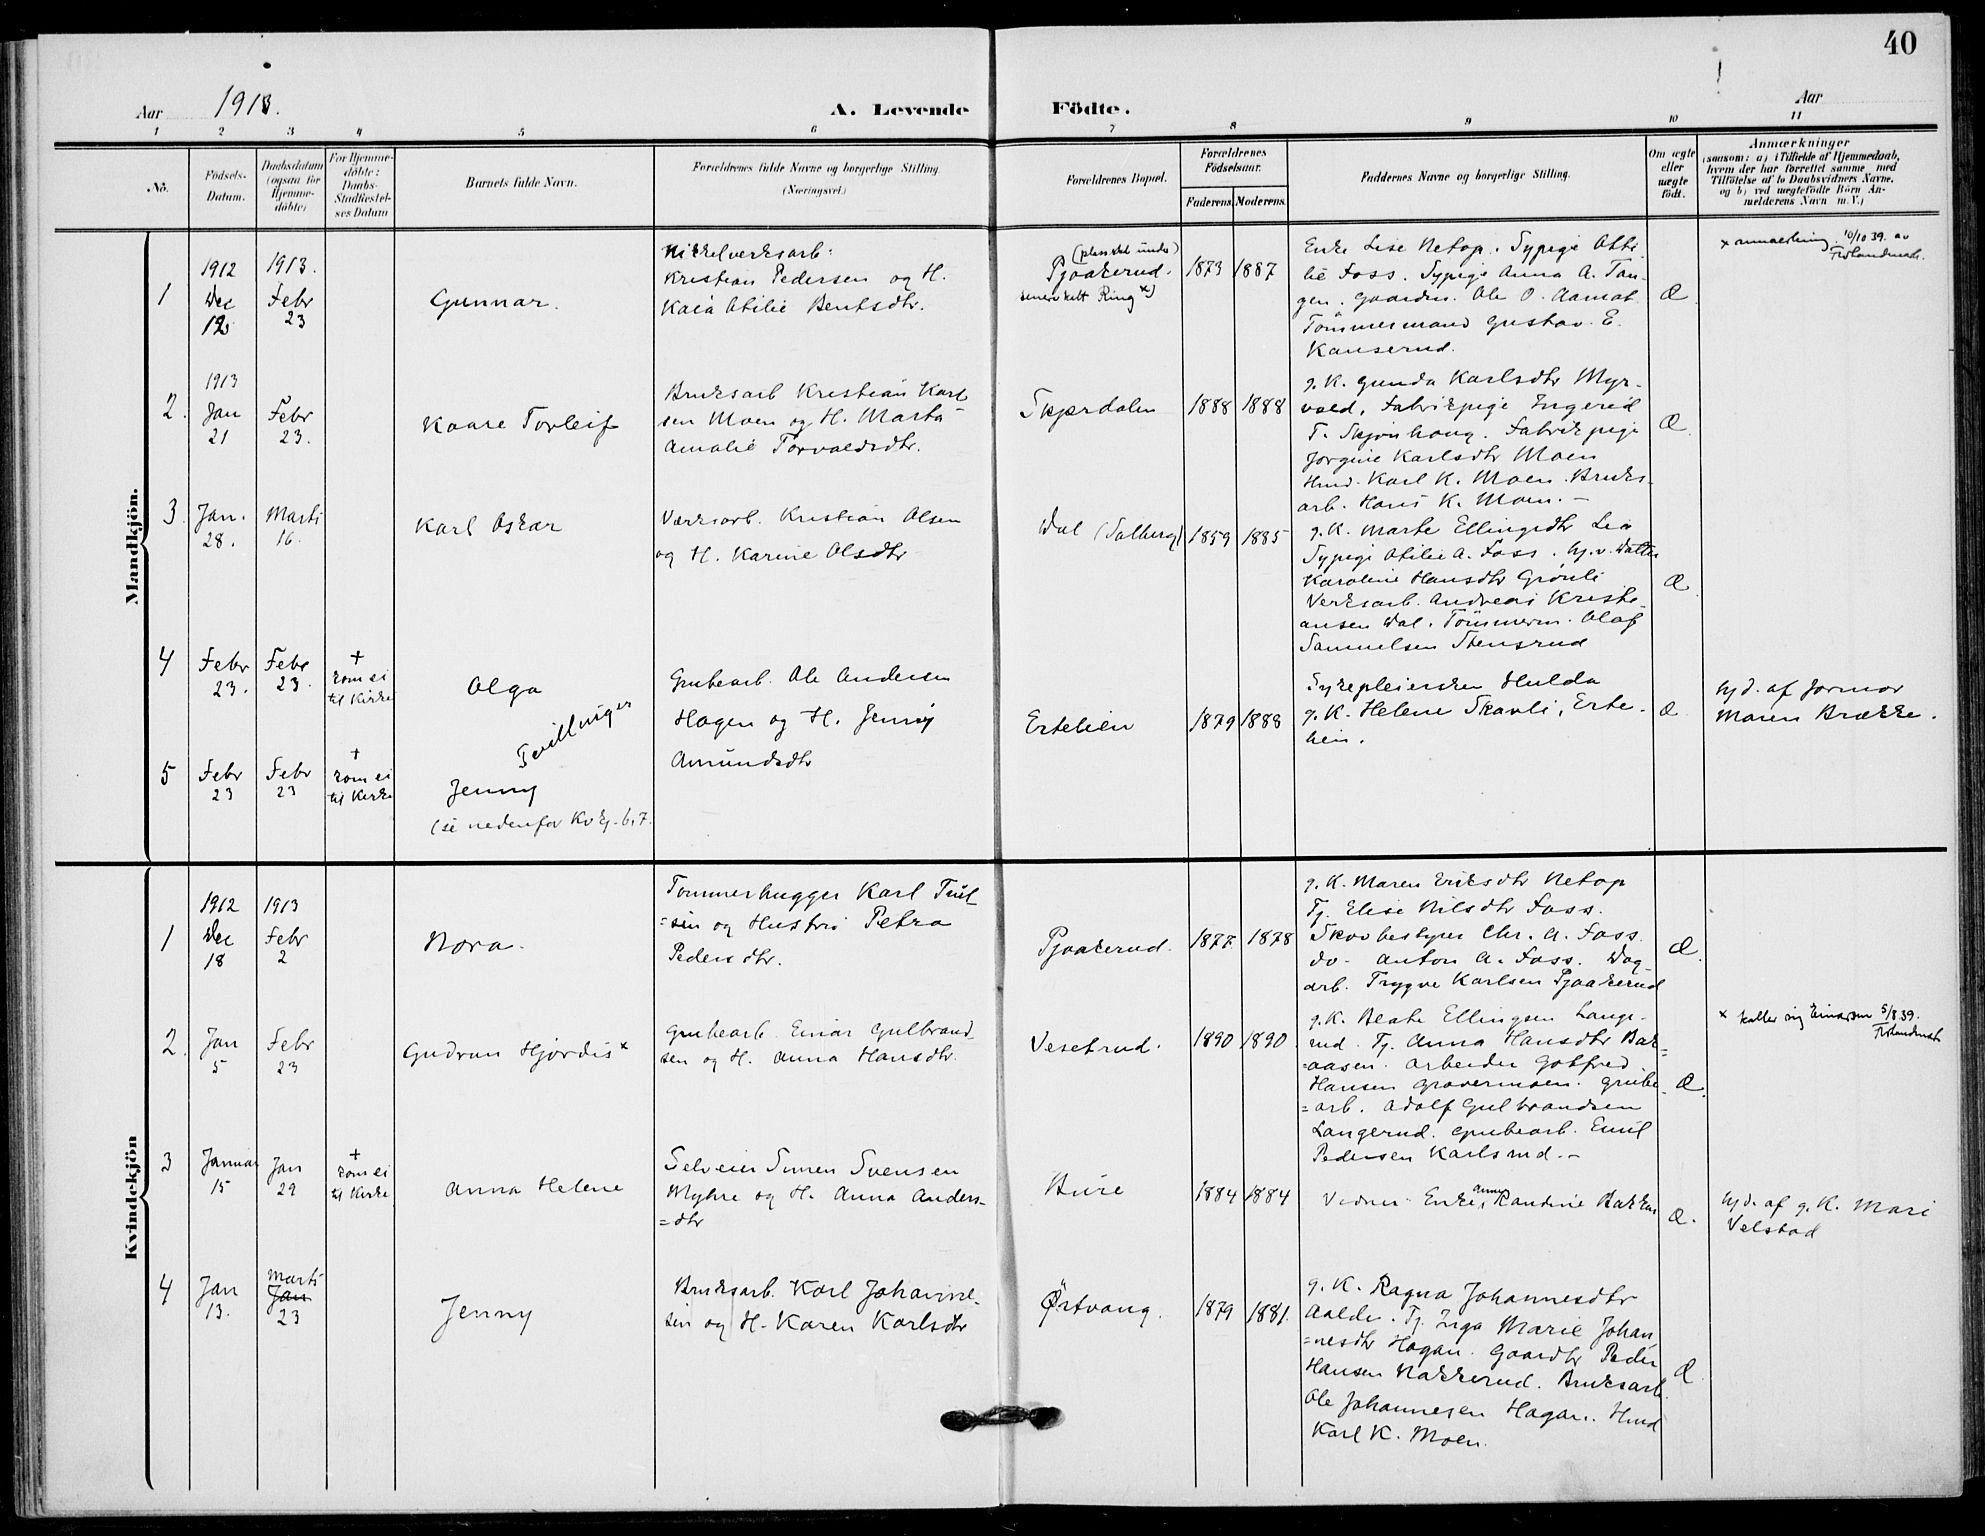 40
Aar 1913. A. Levende Födte. Aar
1 2 3 4 5 6 7 8 9 10 11
No.
Födsels-
Datum.
Daabsdatum
(ogsaa for
Hjemme-
döbte)
For Hjemme-
döbte:
Daabs-
Stadfæstel-
ses Datum
Barnets fulde Navn.
Forældrenes fulde Navne og borgerlige Stilling
(Næringsvei.)
Forældrenes Bopæl.
Forældrenes
Födselsaar.
Faderens. Moderens.
Faddernes Navne og borgerlige Stilling.
Om ægte
eller
uægte
födt.
Anmærkninger
(saasom: a) i Tilfælde af Hjemmedaab,
hvem der har forrettet samme, med
Tilföielse af to Daabsvidners Navne,
og b) ved uægtefödte Börn An-
melderens Navn m. V.)
Mandkjön.
1
1912
Dec
12
1913.
Febr
23
Gunnar.
Nikkelverksarb:
Kristian Pedersen og H.
Kaia Otilie Berntsdtr.
(plassen under)
Pjaakerud.
senere kalt Ring x)
1873 1887
Enke Lise Netop. Sypige Otti
lie Foss. Sypige Anna A. Tan-
gen. Gaardm. Ole O. Aamot
Tømmermand Gustav. E.
Kanserud.
Æ
x anmerkning 10/10 39. av
2.
1913
Jan
21
Febr
23.
Kaare Torleif
Bruksarb Kristian Karl
sen Moen og H. Marta
Amalie Torvaldsdtr.
Skjærdalen
1888 1888
g. K. Gunda Karlsdtr Myr-
vold, Fabrikpige Ingerid
T. Skjønhaug. Fabrikpige
Jorgine Karlsdtr Moen
Hmd. Karl K. Moen. Bruks-
arb. Hans K. Moen. -
Æ.
3.
Jan.
28.
Marts
16.
Karl Oskar
Værksarb. Kristian Olsen
og H. Karine Olsdtr
Dal (Solberg)
1859 1885
g. K. Marte Ellingsdtr Lia
Sypige Otilie A. Foss. hj. v. Datter
Karoline Hansdtr Grønli
Verksarb. Andreas Kristi-
ansen Dal. Tømmerm. Olaf
Samuelsen Stensrud
Æ.
4
Febr
23.
Febr
23.
+
kom ei
til Kirke
Olga
Tvillinger
Grubearb. Ole Andersen
Hagen og H. Jenny
Amundsdtr
Ertelien
1879 1888
Sykepleiersken Hulda
g. K. Helene Skavli, Erte-
lien.
Æ
hj d. af Jormor
Maren Brække.
5
Febr
23
Febr
23
+
kom ei
til Kirke
Jenny
(se nedenfor Kvkj. 6, 7.
Kvindekjön
1
1912
Dec
18
1913
Febr
2
Nora.
Tømmerhugger Karl Truls
=sen og Hustru Petra
Pedersdtr.
Pjaakerud.
1877. 1878
g. K. Maren Eriksdtr Netop
Tj. Elise Nilsdtr Foss.
Skovbestyrer Chr. A. Foss.
do- Anton A. Foss. Dag-
arb. Trygve Karlsen Pjaakerud
Æ.
2.
Jan
5
Febr
23
Gudrun Hjørdis x
Grubearb. Einar Gulbrand-
sen og H. Anna Hansdtr.
Vesetrud.
1890 1890
g. K. Beate Ellingsen Lange-
rud. Tj. Anna Hansdtr Bak-
=aasen. Arbeider Gotfred
Hansen Gravermoen. Grube-
=arb. Adolf Gulbrandsen
Langerud. Grubearb. Emil
Pedersen Karlsrud. -
Æ.
x kaller sig Einarsen 5/8 39.
3
Januar
15
Jan
29
+
kom ei
til Kirke
Anna Helene
Selveier Simen Svensen
Myhre og H. Anna Anders-
=dtr
Bure
1884 1884
Vidner: Enke, Anne Randine Bakken
Æ.
hj d. af g. K. Mari
Velstad
4
Jan
13.
Marts
Jan
23
Jenny
Bruksarb. Karl Johanne-
sen og H. Karen Karlsdtr
Ørtvang.
1879 1881.
g. K. Ragna Johannesdtr
Aalde. Tj. Inga Marie Johan
=nesdtr Hagan. Gaardbr Peder
Hansen Nakkerud. Bruksarb.
Ole Johannesen Hagan. Hmd
Karl K. Moen.
Æ